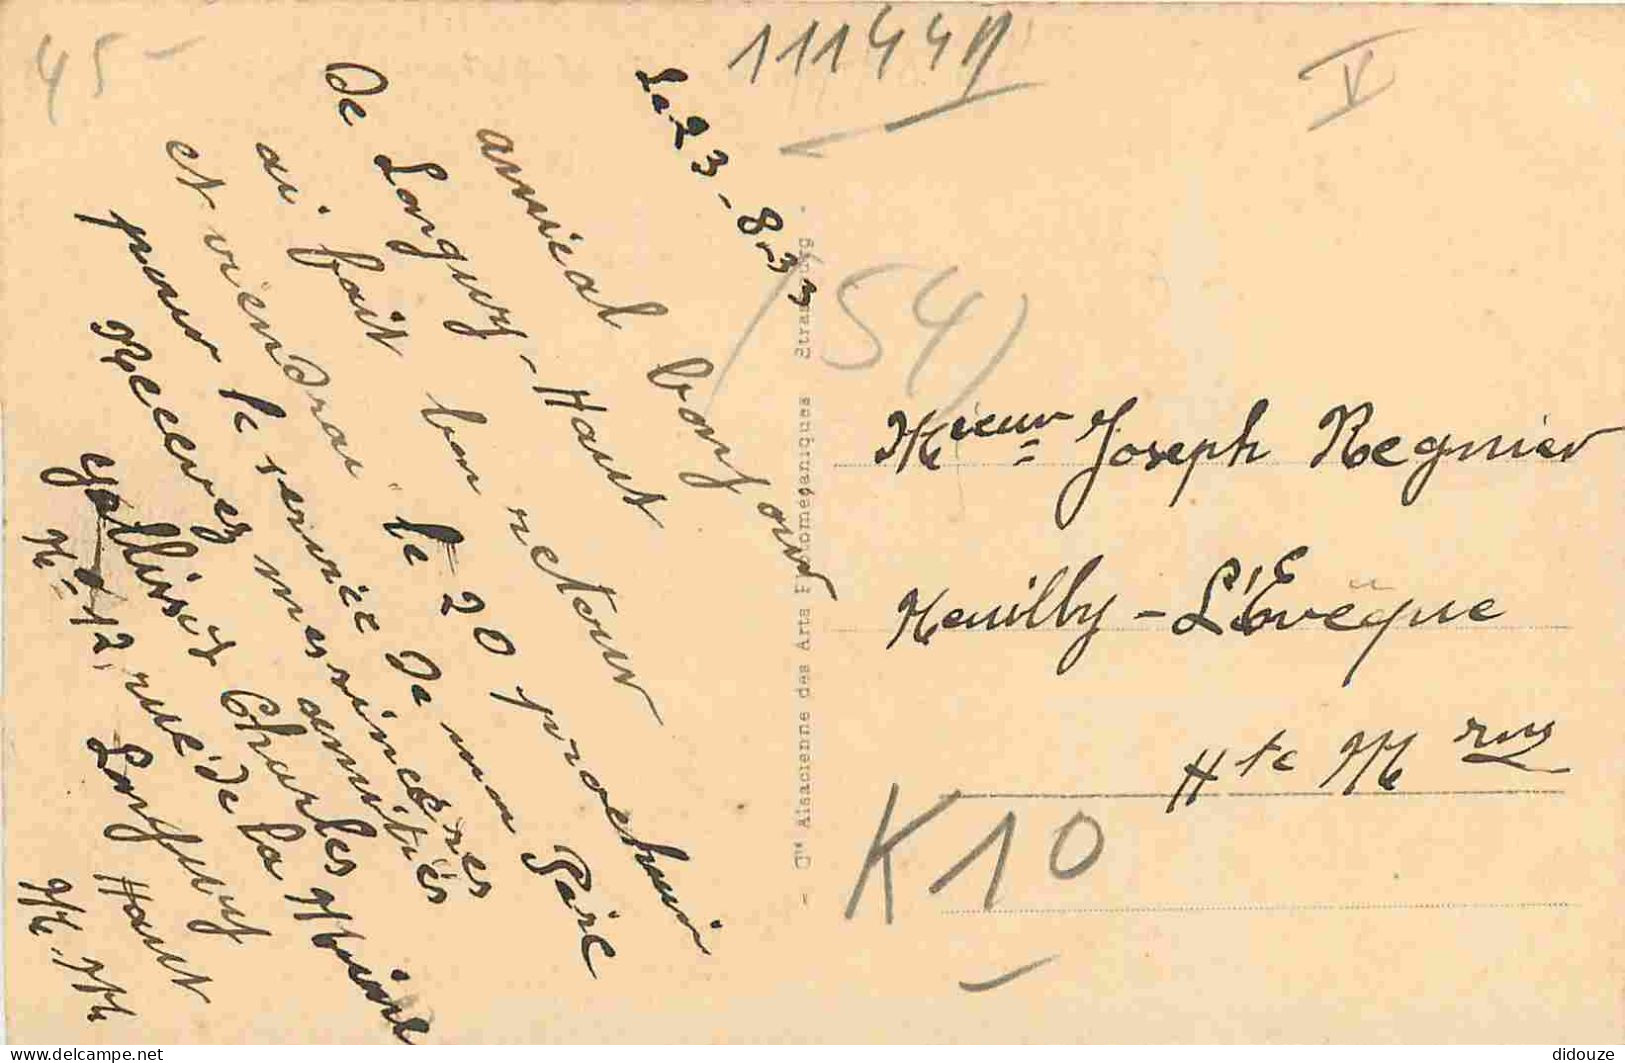 45-
11144
V
Le 23-8-33
amical bonjour
de Longuvy-Haut
ai fait bon retour
et viendrai le 20 prochain
pour le service de mon Père
Recevez mes sincères
amitiés
Charles
N° 12, rue de la
Longuvy
Haut
M.M.
(54)
- Cie Alsacienne des Arts Photomécaniques Strasbourg -
Mr ieur Joseph Regnier
Neuilly-L'Evèque
Hte M rne
K10
didouze